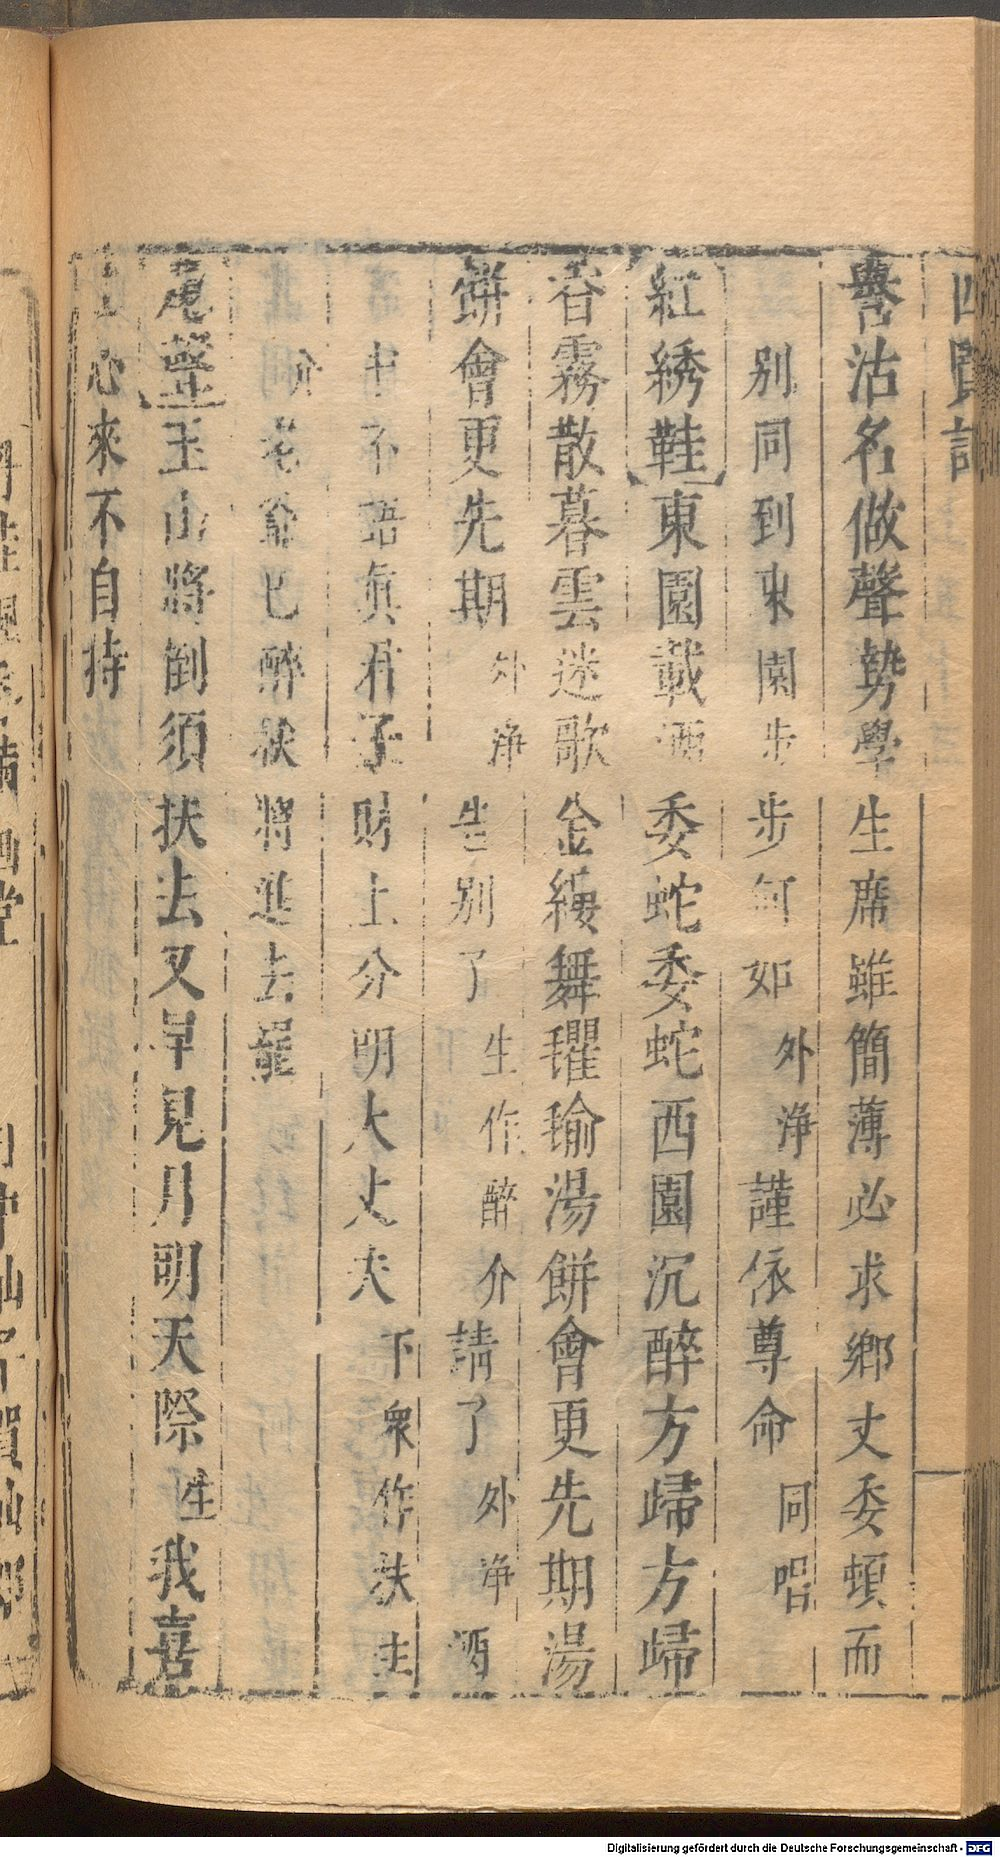 四賢記
譽沽名做聲勢學生席雖簡薄必求鄉丈委頓而
別同到東園步步何如外淨謹依尊命同唱
紅綉鞋東園載酒委蛇委蛇西園沉醉方歸方歸
谷霧散暮雲迷歌金縷舞瓊瑜湯餅會更先期湯
餅會更先期外淨告別了生作醉介請了外淨酒
中不語眞君子財上分明大丈夫下衆作扶生
介老爺已醉扶將進去罷
尾聲玉山將倒須扶去又早見月明天際生我喜
上心來不自持
Digitalisierung gefördert durch die Deutsche Forschungsgemeinschaft - DFG